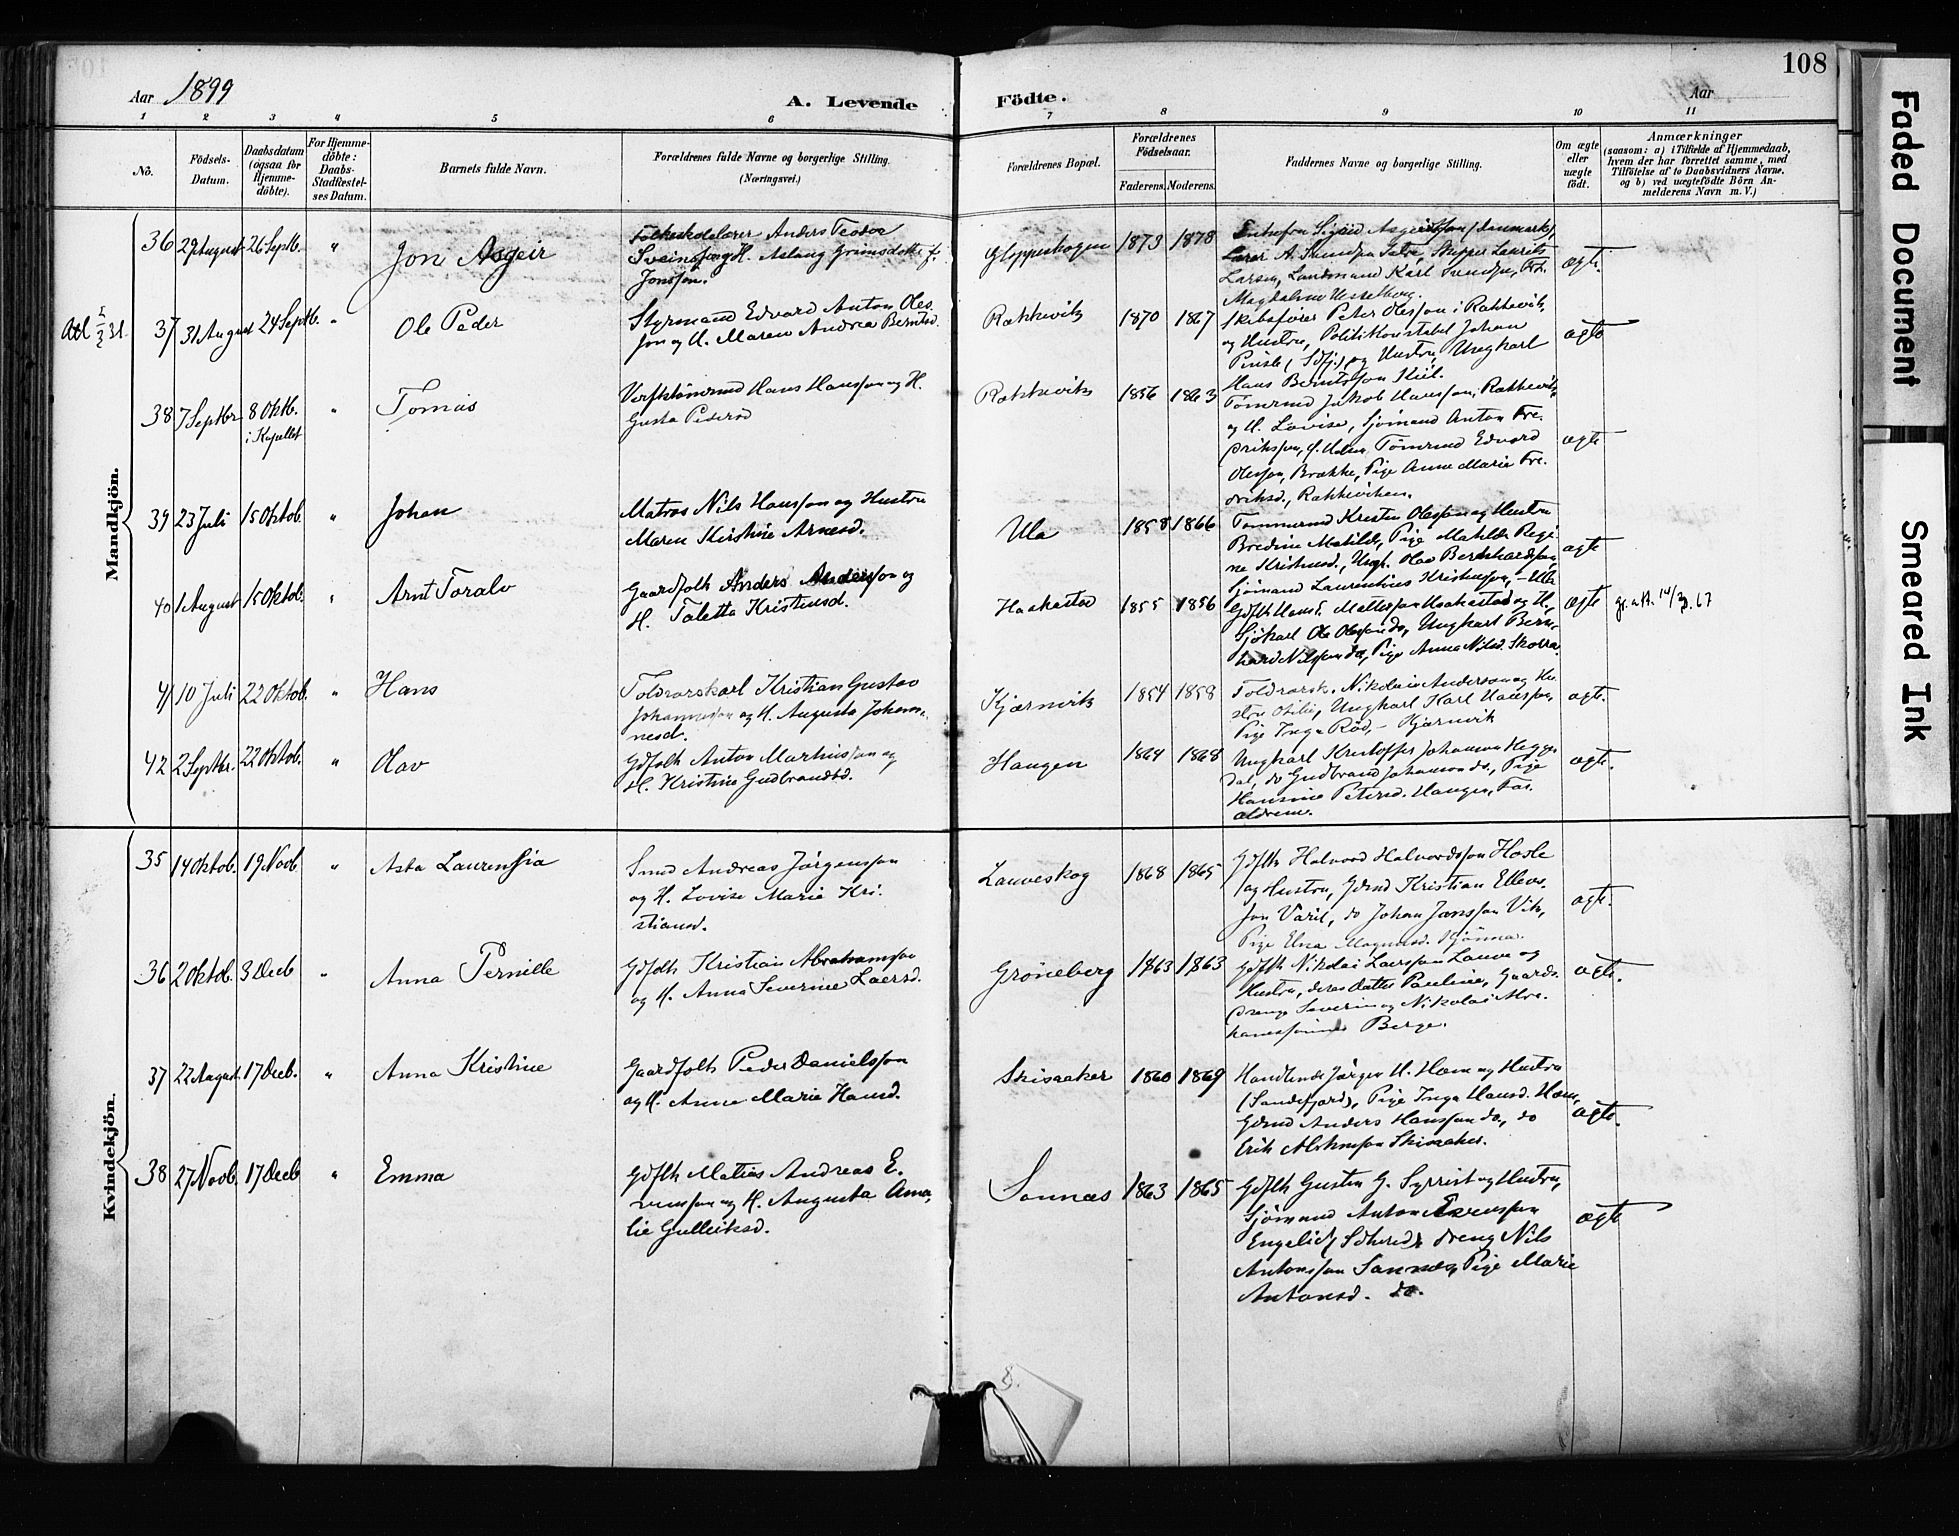 108
Aar 1899
A. Levende Födte.
Aar
1 2 3 4 5 6 7 8 9 10 11
No.
Födsels-Datum.
Daabsdatum (ogsaa for Hjemmedöbte).
For Hjemmedöbte: Daabs-Stadfæstelses Datum.
Barnets fulde Navn.
Forældrenes fulde Navne og borgerlige Stilling.
(Næringsvei.)
Forældrenes Bopæl.
Forældrenes Födselsaar.
Faderens. Moderens.
Faddernes Navne og borgerlige Stilling.
Om ægte eller uægte födt.
Anmærkninger
(saasom: a) i Tilfælde af Hjemmedaab, hvem der har forrettet samme, med Tilföielse af to Daabsvidners Navne. og b) ved uægtefödte Börn Anmelderens Navn m. V.)
Mandkjön.
36 29 August 26 Septb. " Jon Asgeir
Folkeskolelærer Anders Teodor
Sveinsson og H. Aslaug Grimsdotter f.
Jonsson.
1873 1878
ægte.
Larsen, Landmand Karl
37 31 August 24 Septb. " Ole Peder
Styrmand Edvard Anton Oles-
son og H. Maren Andrea Berntsd.
Rækkevik 1870 1867
Skibsfører Peter Olesson i Rækkevik,
og Hustru, Politikonstabel Johan
og Hustru, Ungkarl
Hans Berntsson Kiil.
ægte
38 7 Septbr. 8 Oktb. i Kapellet " Tomas
Hans Hansson og H.
Gusta Pedersd
Rækkevik 1856 1863
Tømrmd Jakob Hansson, Rækkevik,
og H. Lovise, Sjømand Anton Fre-
driksson, Tømrmd Edvard
Olesson, Brække, Pige Anne Marie Fre-
driksd., Rækkeviken.
ægte
39 23 Juli 15 Oktob. " Johan
Matros Nils Hansson og Hustru
Maren Kirstine Arnesd.
Ula 1858 1866
Tømmermd Kristen Olesson og Hustru
Bredine Matilde, Pige Matilde Regi-
ne Kristensd., Ungk. Olav Bernhardsson,
Sjømand Laurentius Kristensson, - Ula
ægte
40 1 August 15 Oktob. " Arnt Toralv
Gaardfolk Anders Andersson og
H. Taletta Kristensd.
Haakestad 1855 1856
Gdflk Hans E. Mattesson Haakestad og H.,
Sjøkarl Ole Olesson do, Ungkarl Bern-
hard Nilsson do, Pige Anna Nilsd. Skorra
ægte
41 10 Juli 22 Oktob. " Hans
Toldrorskarl Kristian Gustav
Johannesson og H. Augusta Johan-
nesd.
Kjærnvik 1854 1858
Toldrorsk. Nikolai Anderson og Hu-
stru Otilie, Ungkarl Karl Hansson,
Pige Inga Röd, - Kjærnvik
ægte.
42 2 Septbr. 22 Oktob. " Olav
Gdfolk Anton Martinusson og
H. Kristine Gudbrandsd.
Haugen 1864 1868
Ungkarl Kristoffer Johanson Hegge-
dal, do Gudbrand Johanson do., Pige
Hansine Petersd. Haugen, For-
ældrene.
ægte.
Kvindekjön.
35 14 Oktob. 19 Novb. " Asta Laurensia
Smed Andreas Jörgensson
og H. Lovise Marie Kri-
stiansd.
Lauveskog 1868 1865
Gdflk Halvord Halvordsson Hasle
og Hustru, Gdmd Kristian Ellevs-
son Varil, do Johan Jansson Vik,
Pige Elna Magnusd. Hjønna.
ægte.
36 2 Oktob. 3 Decb " Anna Pernille
Gdfolk Kristian Abrahamsson
og H. Anna Severine Laersd.
Gröneberg 1863 1863
Gdflk Nikolai Laersson Lauve og
Hustru, deres datter Pauline, Gaards-
drenge Severin og Nikolai Abra-
hamssønner Berge.
ægte.
37 22 August 17 Decb. " Anna Kristine
Gaardfolk Peder Danielsson
og H. Anne Marie Hansd.
Skisaaker 1860 1869
Handlende Jörgen H. Hem og Hustru
(Sandefjord), Pige Inga Hansd. Hem,
Gdmd Anders Hansson do, do
Erik Abrahmsson Skisaaker.
ægte.
38 27 Novb. 17 Decb " Emma
Gdflk Matias Andreas E-
vensson og H. Augusta Ama-
lie Gulleiksd.
Sannes 1863 1865
Gdflk Gustin G. Syrrist og Hustru,
Sjømand Anton Evensson
Engelid, dreng Nils
Antonsson Sannes, Pige Marie
Antonsd. do.
ægte
Faded Document
Smeared Ink